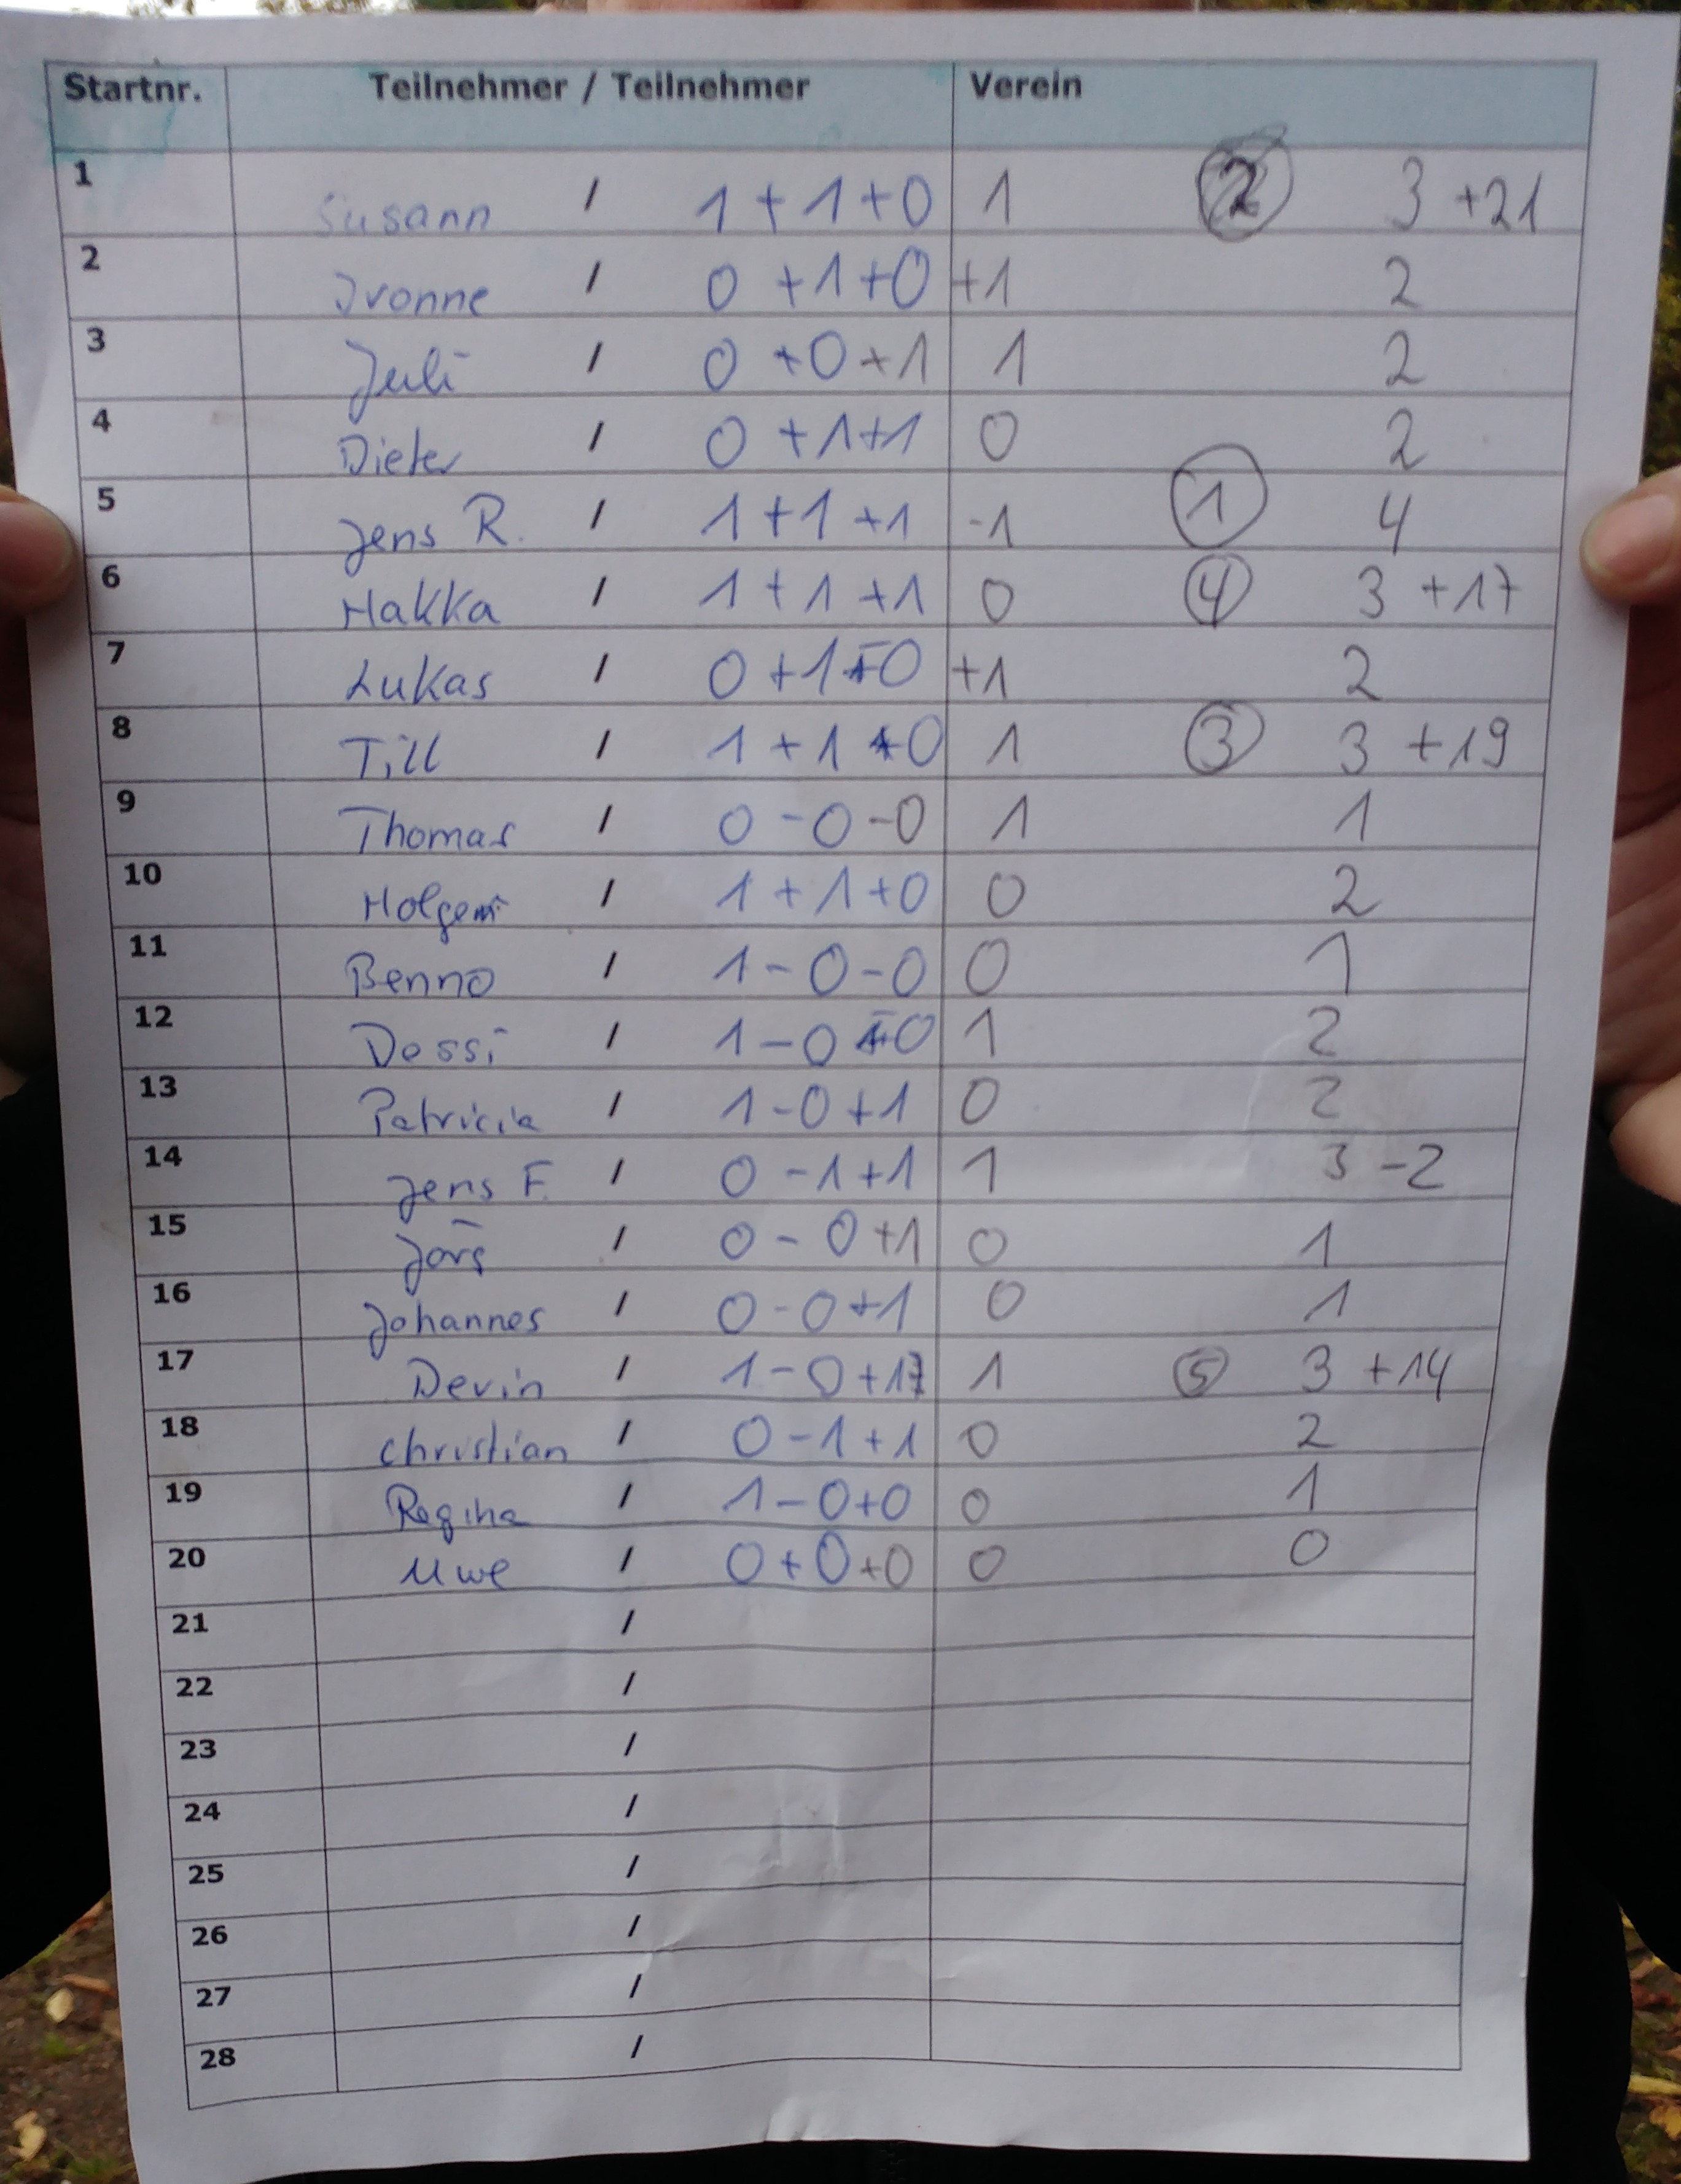 Startnr. Teilnehmer / Teilnehmer Verein
1 Susann / 1+1+0 1 2 3 +21
2 Ivonne / 0+1+0 +1 2
3 Juli / 0+0+1 1 2
4 Dieter / 0+1+1 0 2
5 Jens R. / 1+1+1 -1 1 4
6 Hakka / 1+1+1 0 4 3 +17
7 Lukas / 0+1+0 +1 2
8 Till / 1+1+0 1 3 3 +19
9 Thomas / 0-0-0 1 1
10 / 1+1+0 0 2
11 Benno / 1-0-0 0 1
12 Dossi / 1-0+0 1 2
13 Patricia / 1-0+1 0 2
14 Jens F. / 0-1+1 1 3 -2
15 Jörg / 0-0+1 0 1
16 Johannes / 0-0+1 0 1
17 Devin / 1-0+1 1 5 3 +14
18 Christian / 0-1+1 0 2
19 Regina / 1-0+0 0 1
20 Uwe / 0+0+0 0 0
21 /
22 /
23 /
24 /
25 /
26 /
27 /
28 /